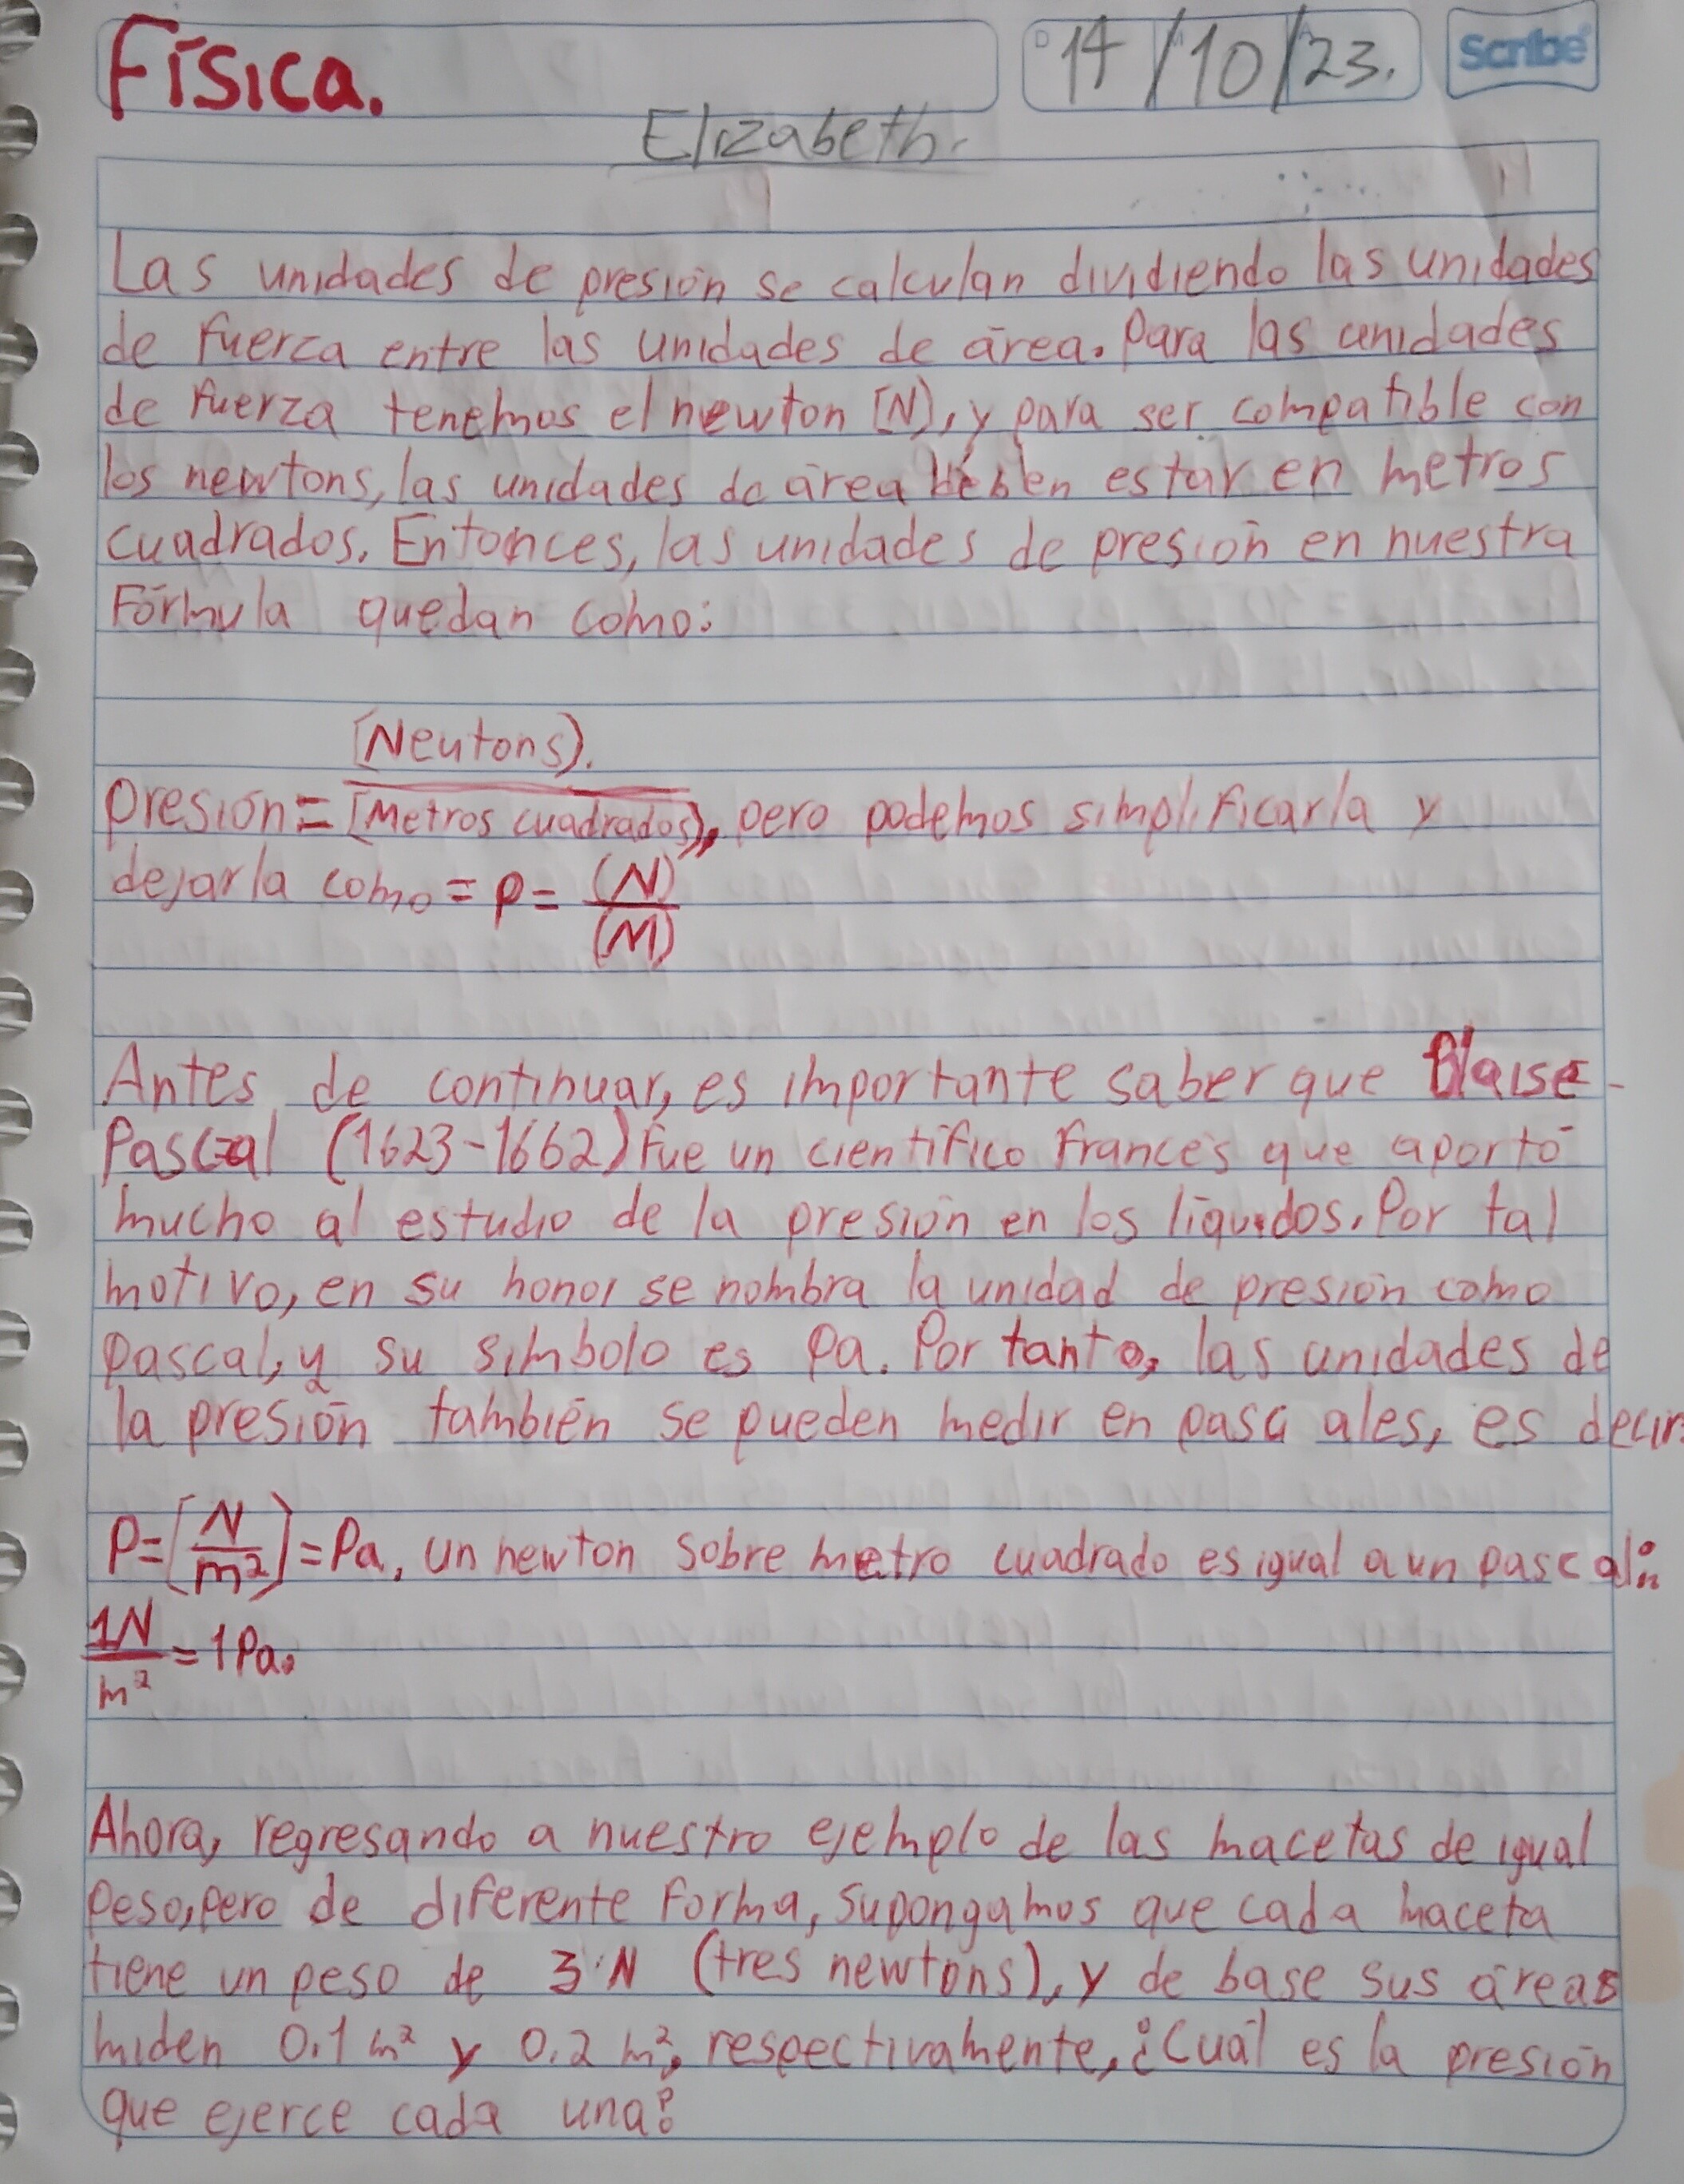 Física.
14/10/23.
Scribe
Elizabeth.
Las unidades de presión se calculan dividiendo las unidades
de fuerca entre las unidades de área. Para las unidades
de fuerza tenemos el newton [N), y para ser compatible con
los newtons, las unidades de área deben estar en metros
cuadrados. Entonces, las unidades de presión en nuestra
Fórmula quedan como:
[Neutons).
presión= [Metros cuadrados), pero podemos simplificarla y
dejarla como = p= (N)
(M)
Antes de continuar, es importante saber que Blaise-
Pascal (1623-1662) fue un científico francés que aportó
mucho al estudio de la presión en los líquidos. Por tal
motivo, en su honor se nombra la unidad de presión como
pascal, y su símbolo es Pa. Por tanto, las unidades de
la presión también se pueden medir en pascales, es decir:
P=[N/m²]=Pa, un newton sobre metro cuadrado es igual a un pascal:
1N/m² = 1Pa.
Ahora, regresando a nuestro ejemplo de las macetas de igual
peso, pero de diferente forma, supongamos que cada maceta
tiene un peso de 3 N (tres newtons), y de base sus áreas
miden 0.1 m² y 0.2 m², respectivamente, ¿Cuál es la presión
que ejerce cada una?